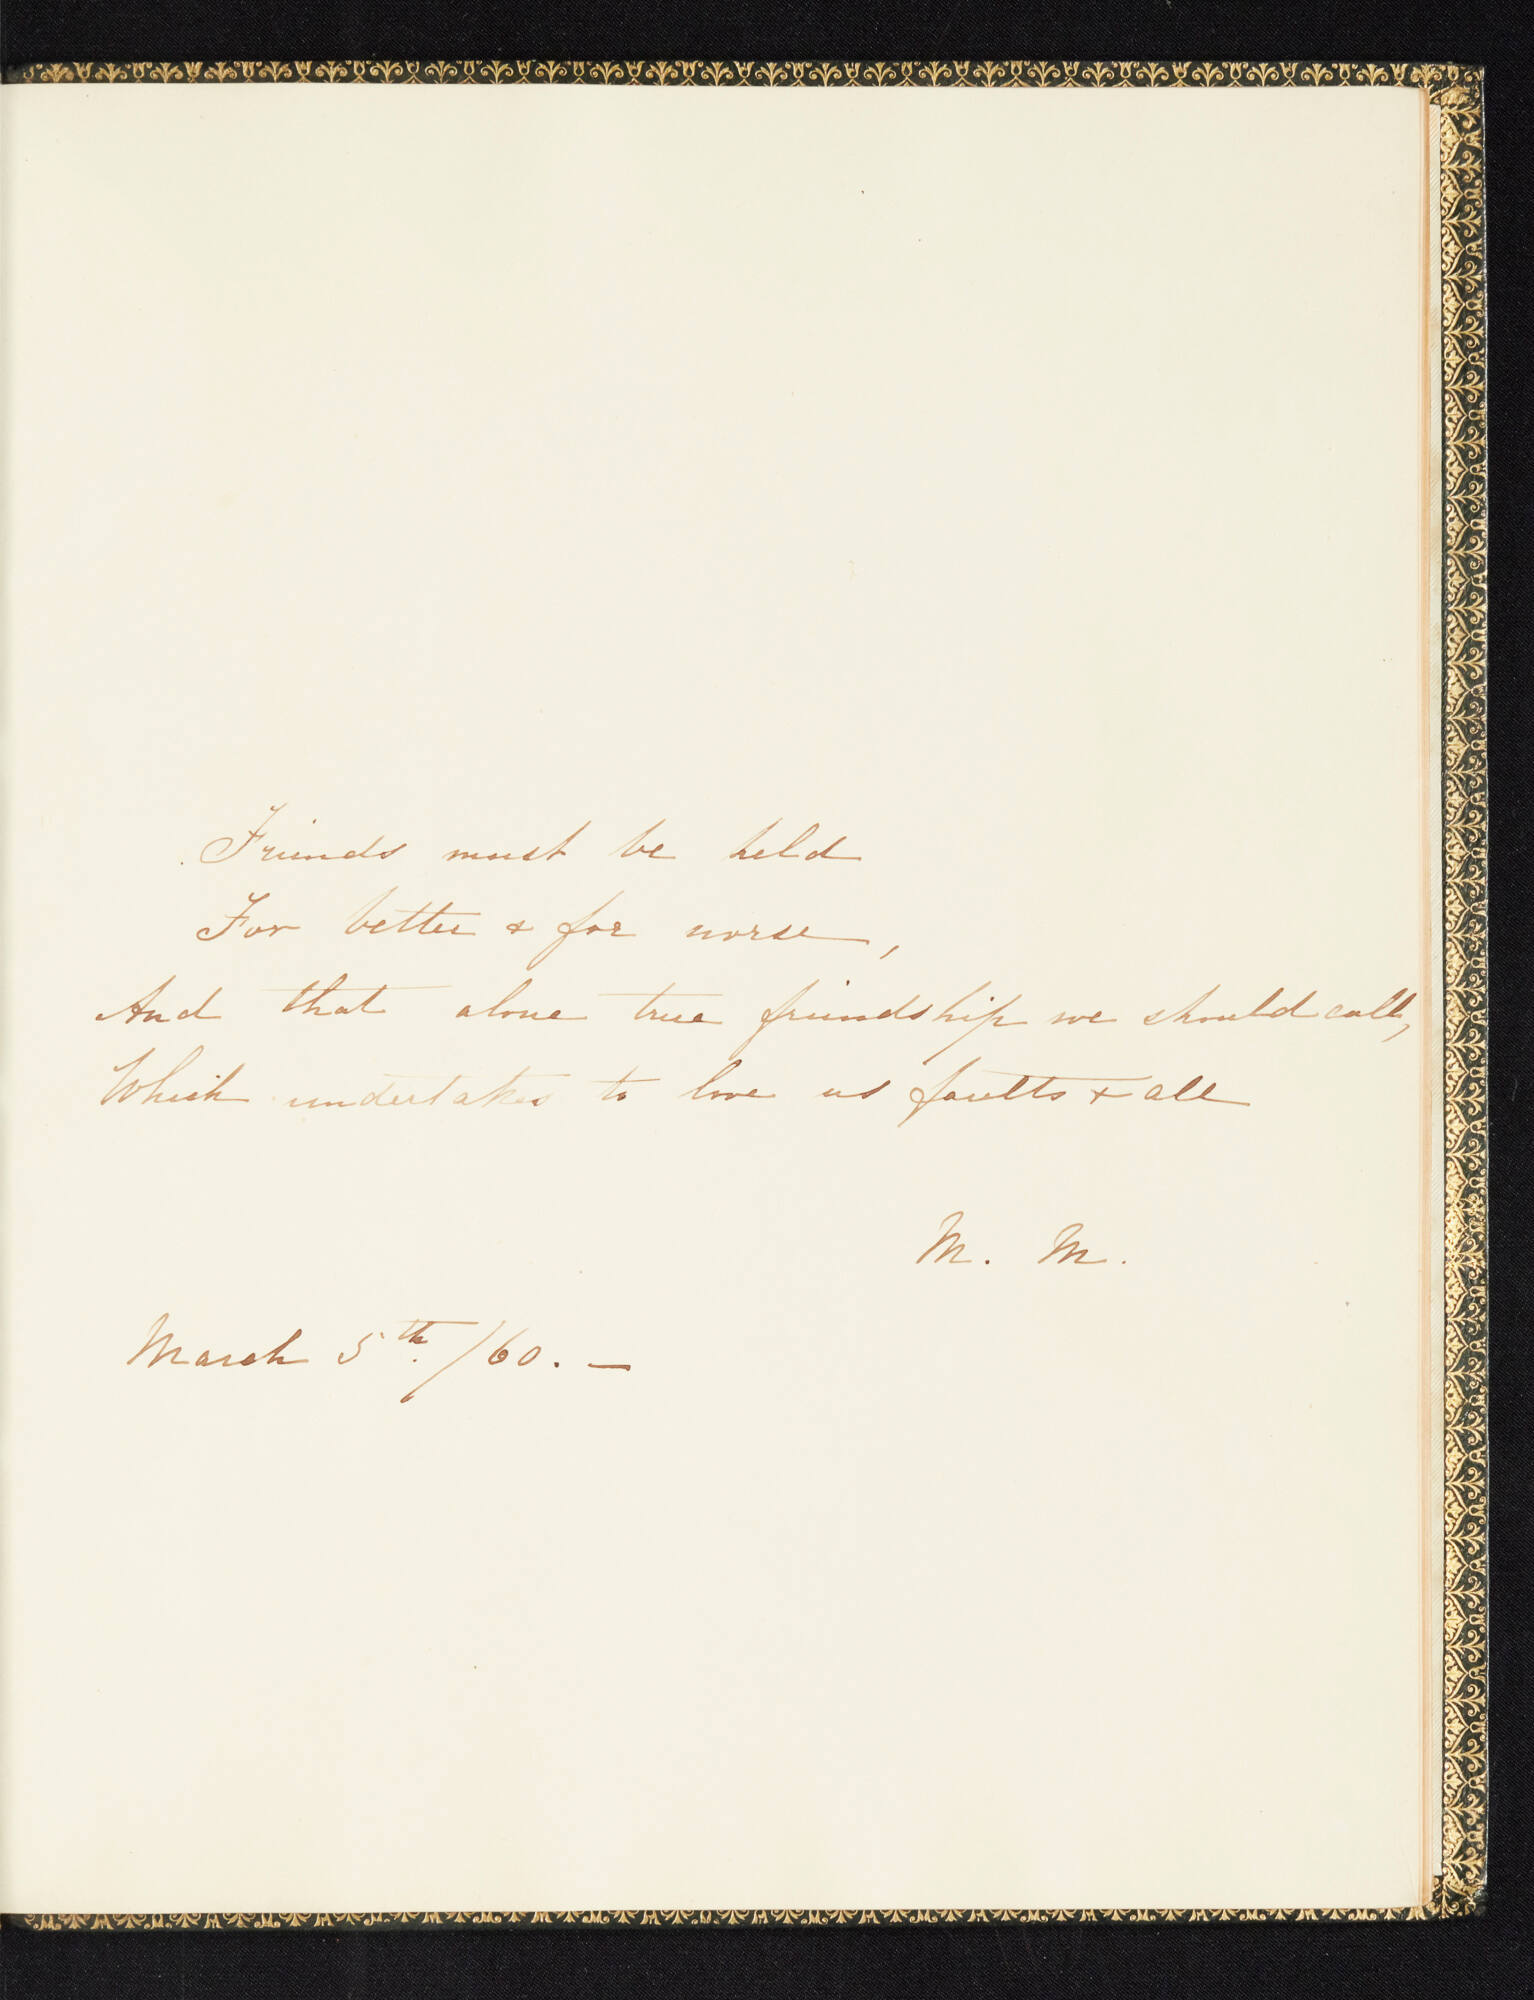 Friends must be held
For better & for worse,
And that alone true friendship we should call,
Which undertakes to love us faults & all
M. M.
March 5th./60. —